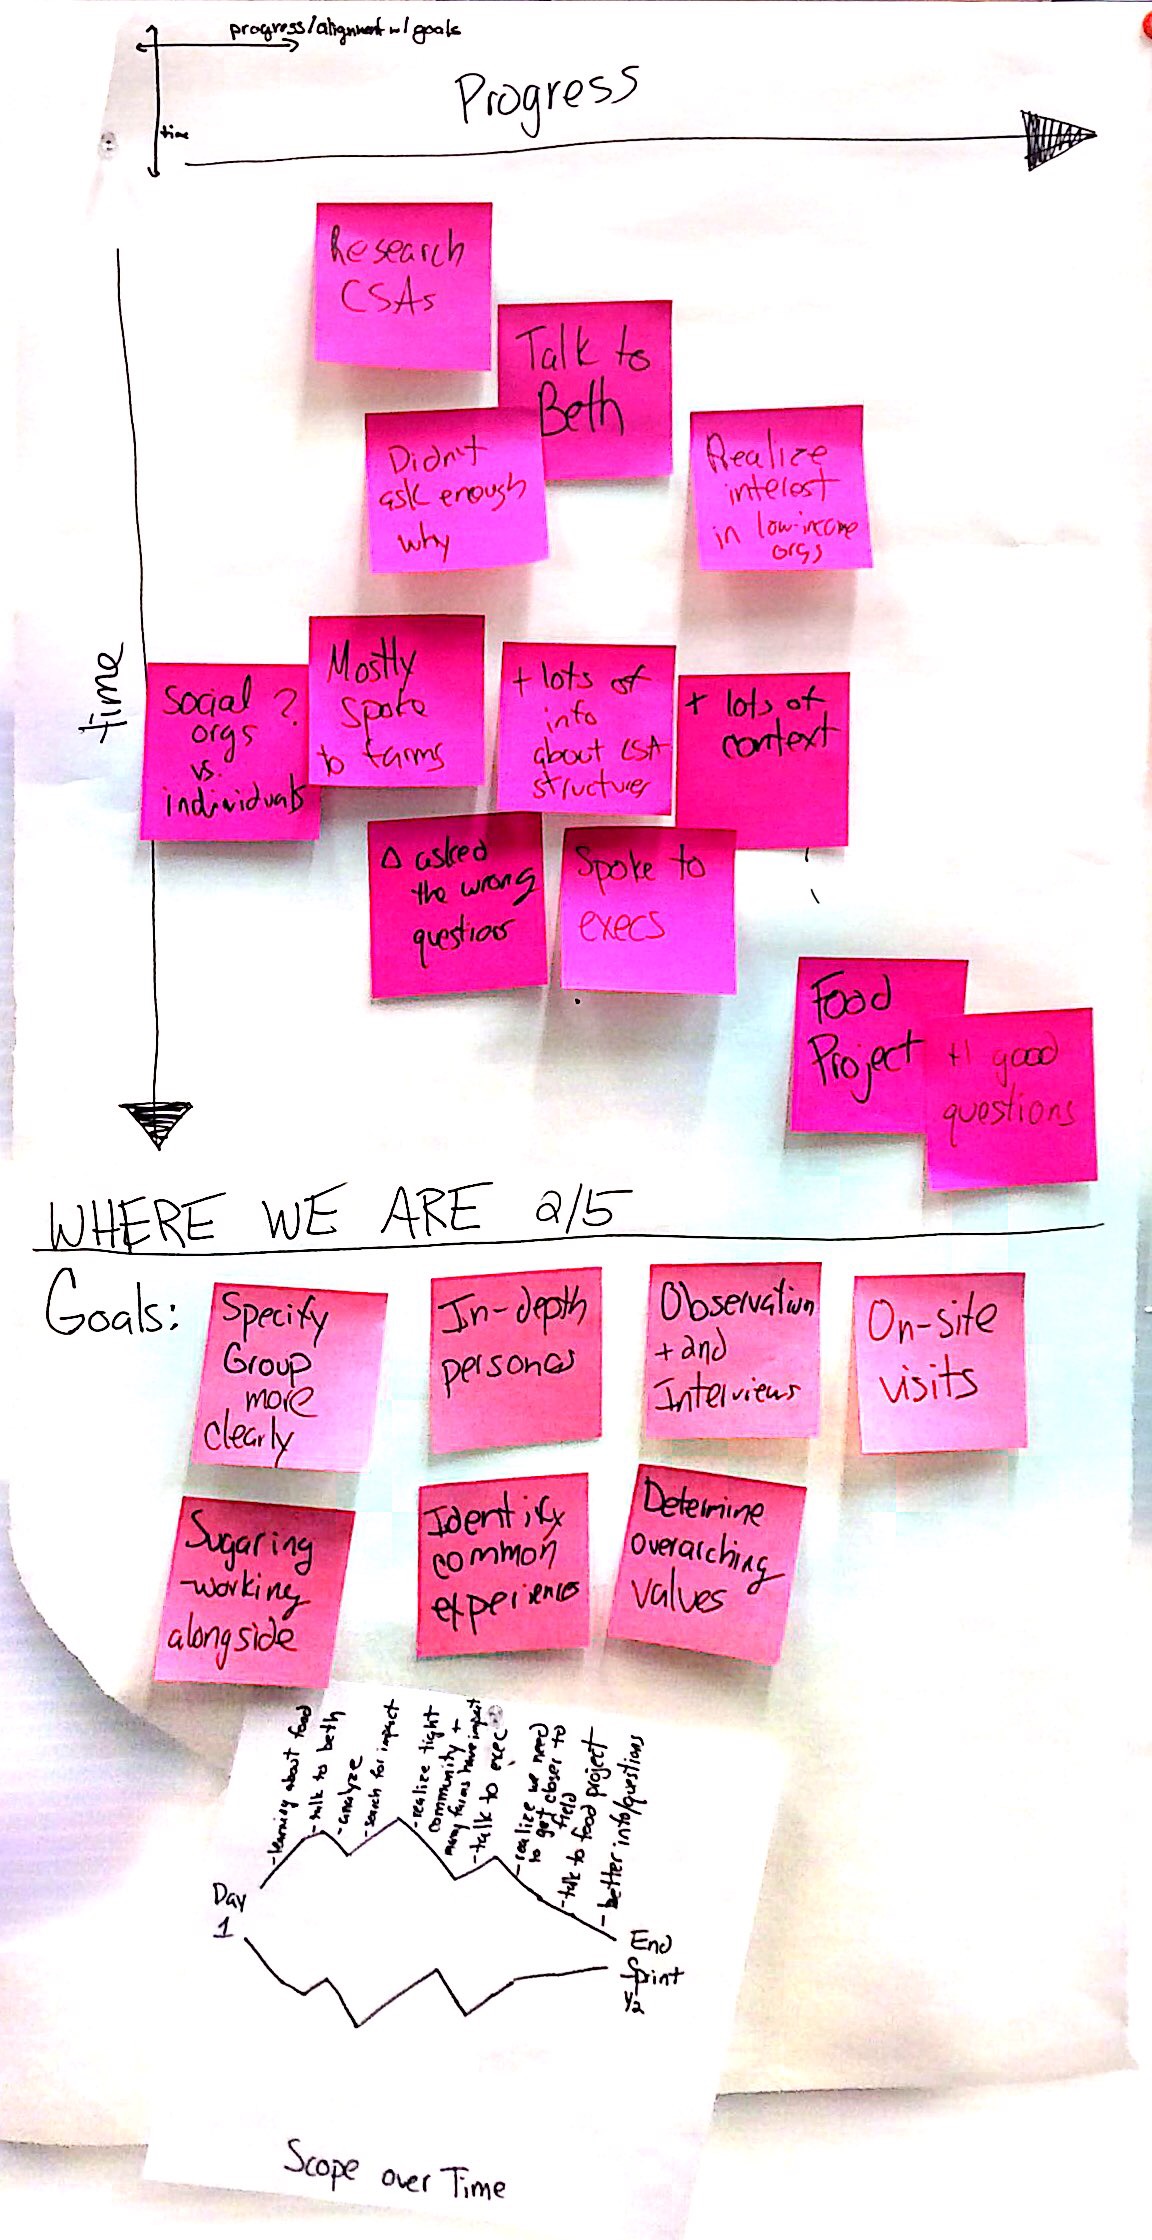 progress/alignment w/ goals
time
Progress
time
Research
CSAs
Talk to
Beth
Didn't
ask enough
why
Realize
interest
in low-income
orgs
Social ?
orgs
vs.
individuals
Mostly
spoke
to farms
+ lots of
info
about CSA
structures
+ lots of
context
Δ asked
the wrong
questions
Spoke to
execs
Food
Project
+1 good
questions
WHERE WE ARE 2/5
Goals:
Specify
Group
more
clearly
In-depth
personas
Observation
+and
Interviews
On-site
visits
Sugaring
-working
alongside
Identify
common
experiences
Determine
overarching
values
-learning about food
-talk to beth
-analyze
-search for impact
-realize tight
community +
many farms have impact
-talk to exec
-realize we need
to get closer to
field
-talk to food project
-better info/questions
Day
1
End
Sprint
1/2
Scope over Time